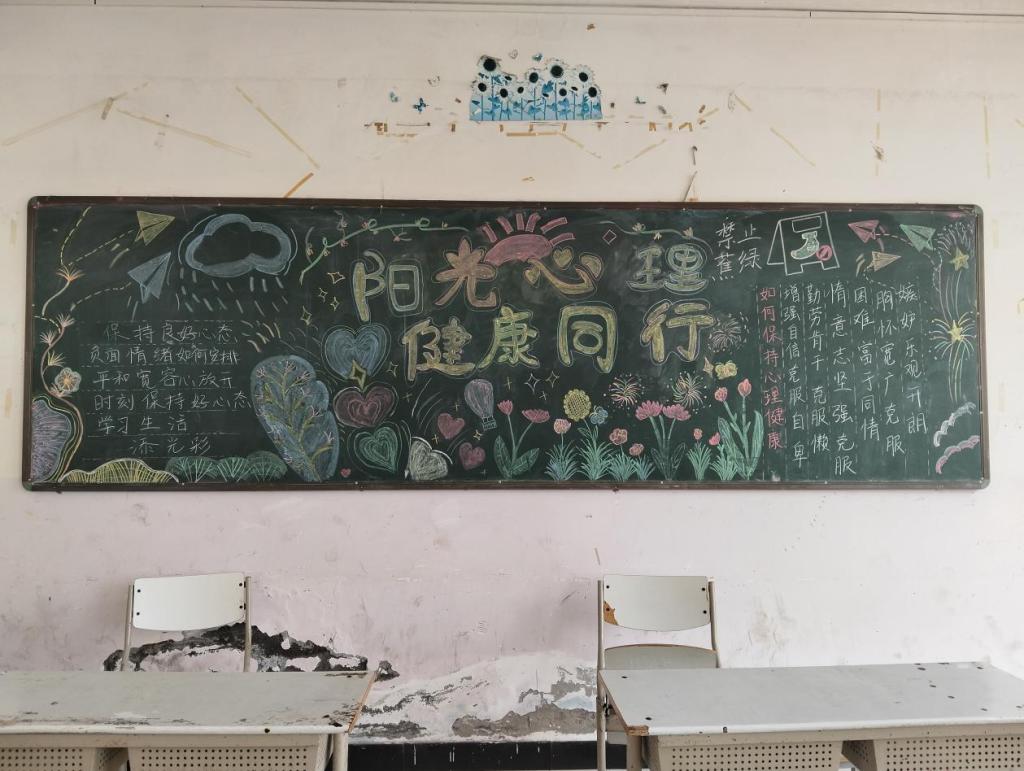 阳光心理
健康同行
保持良好心态
负面情绪如何安排
平和宽容心放开
时刻保持好心态
学习生活
添光彩
禁止
蕉绿
如何保持心理健康
增强自信克服自卑
勤劳肯干 克服懒
惰意志坚强克服
困难富于同情
胸怀宽广克服
嫉妒乐观开朗